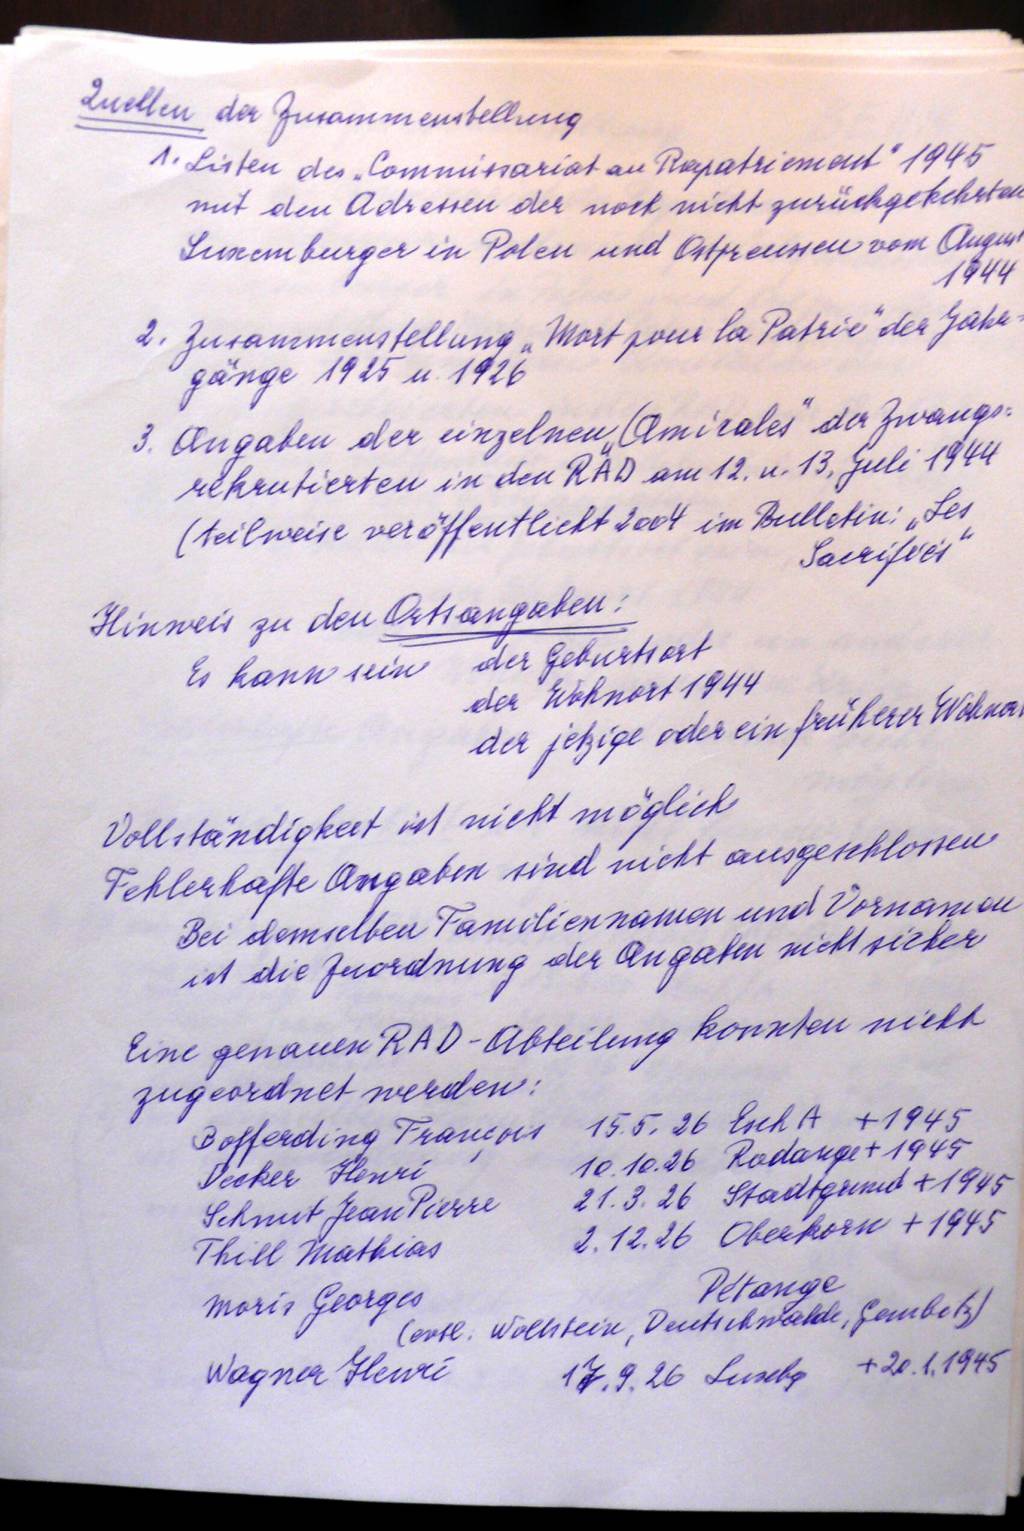 Quellen der Zusammenstellung
1. Listen des „Commissariat au Rapatriement" 1945
mit den Adressen der noch nicht zurückgekehrten
Luxemburger in Polen und Ostpreussen vom August
1944
2. Zusammenstellung „Mort pour la Patrie" der Jahr-
gänge 1925 u. 1926
3. Angaben der einzelnen „Amicales" der Zwangs-
rekrutierten in den RAD am 12. u. 13. Juli 1944
(teilweise veröffentlicht 2004 im Bulletin: „Les
Sacrifiés"
Hinweis zu den Ortsangaben:
Es kann sein der Geburtsort
der Wohnort 1944
der jetzige oder ein früherer Wohnort
Vollständigkeit ist nicht möglich
Fehlerhafte Angaben sind nicht ausgeschlossen
Bei demselben Familiennamen und Vornamen
ist die Zuordnung der Angaben nicht sicher
Eine genauen RAD-Abteilung konnten nicht
zugeordnet werden:
Bofferding François 15.5.26 Esch A +1945
Decker Henri 10.10.26 Rodange +1945
Schmit Jean Pierre 21.3.26 Stadtgrund +1945
Thill Mathias 2.12.26 Oberkorn +1945
Moris Georges Pétange
(evtl. Wollstein, Deutschwalde, Gembitz)
Wagner Henri 17.9.26 Luxbg +20.1.1945